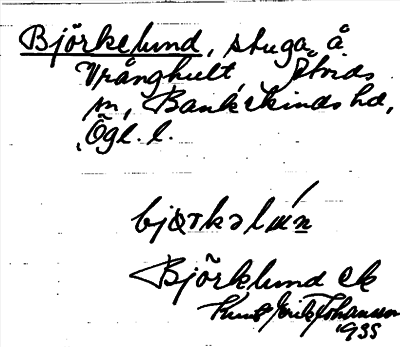 Björkelund, stuga å
Vrånghult, Åtvids
sn, Bankekinds hd,
Ögl. l.
bjɵrkəlún
Björklund ek
Knut Erik Johansson
1935